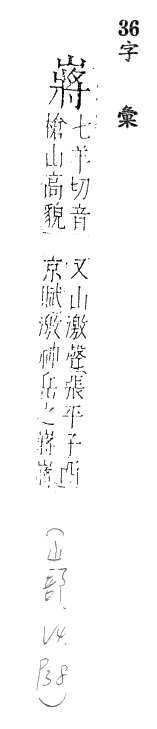 36字 彙
嶈
七羊切音
槍山高貌
又山激聲張平子西
京賦激神岳之嶈嶈
(山部. V4. P38)